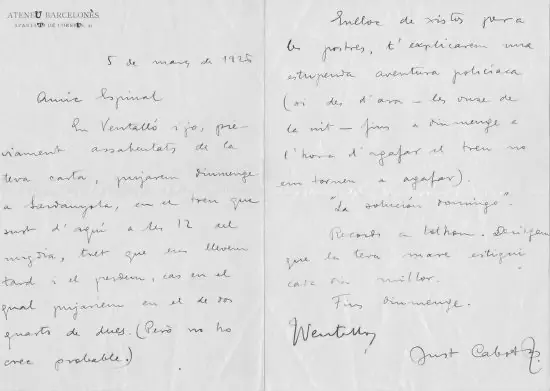 ATENEU BARCELONÈS
APARTAT DE CORREUS,
5 de març de 1925
Amic Espinal
En Ventalló i jo, pre-
viament assabentats de la
teva carta, pujarem diumenge
a Serdanyola, en el tren que
surt d'aquí a les 12 del
migdia, tret que ens llevem
tard i el perdem, cas en el
qual pujarem en el de dos
quarts de dues. (Però no ho
crec probable.)
Enlloc de xistes per a
les postres, t'explicarem una
estupenda aventura policíaca
(si des d'ara - les onze de
la nit - fins a diumenge a
l'hora d'agafar el tren no
ens tornen a agafar).
"La solución domingo".
Records a tothom. Desitgem
que la teva mare estigui
cada dia millor.
Fins diumenge.
Ventalló
Just Cabot